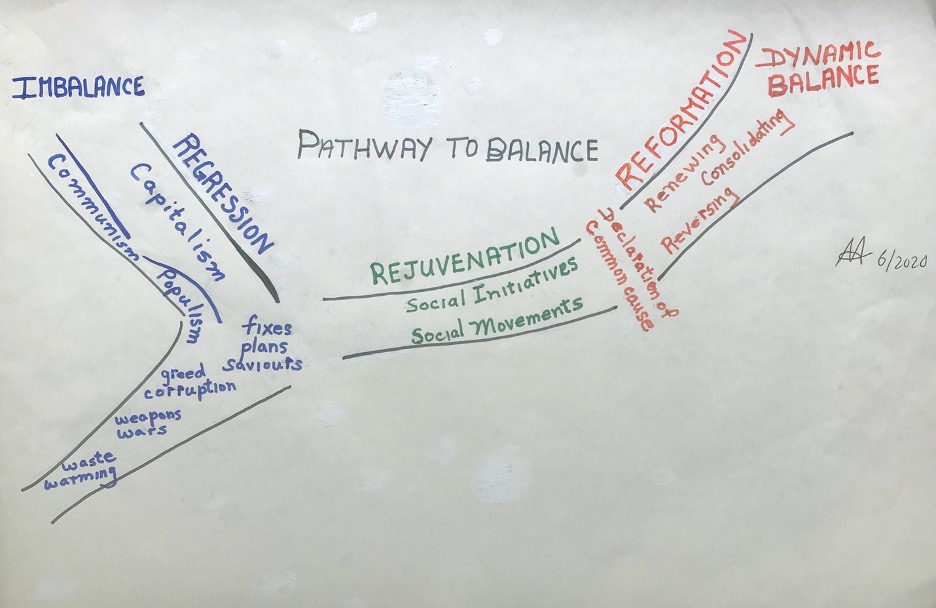 IMBALANCE
REGRESSION
Capitalism
Communism
Populism
fixes
plans
saviours
greed
corruption
weapons
wars
waste
warming
PATHWAY TO BALANCE
REJUVENATION
Social Initiatives
Social Movements
Declaration of
Common cause
REFORMATION
Renewing
Consolidating
Reversing
DYNAMIC
BALANCE
6/2020